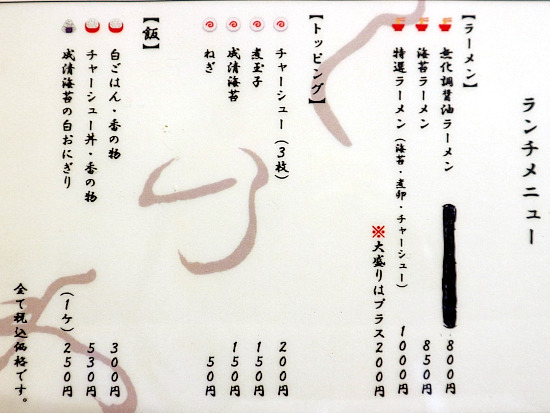 ランチメニュー
【ラーメン】
無化調醤油ラーメン 800円
海苔ラーメン 850円
特選ラーメン(海苔・煮卵・チャーシュー) 1000円
※大盛りはプラス200円
【トッピング】
チャーシュー(3枚) 200円
煮玉子 150円
成清海苔 150円
ねぎ 50円
【飯】
白ごはん・香の物 300円
チャーシュー丼・香の物 530円
成清海苔の白おにぎり (1ケ) 250円
全て税込価格です。